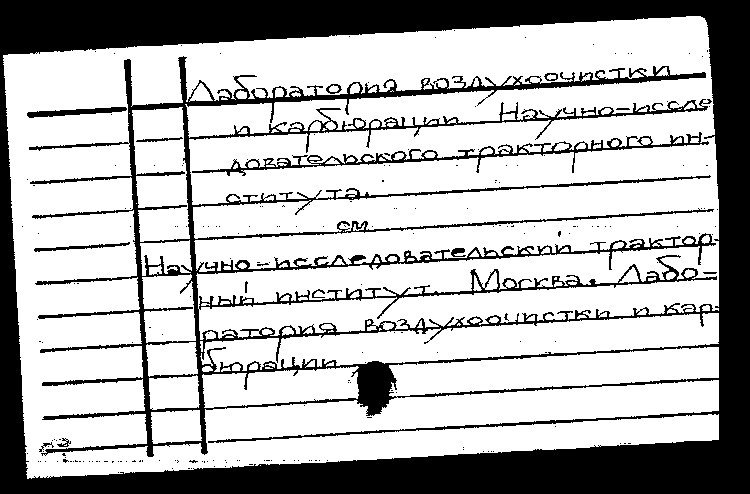 Лаборатория воздухоочистки
и карбюрации Научно-иссле
довательского тракторного ин-
ститута.
см
Научно-исследовательский трактор-
ный институт. Москва. Лабо-
ратория воздухоочистки и кар-
бюрации